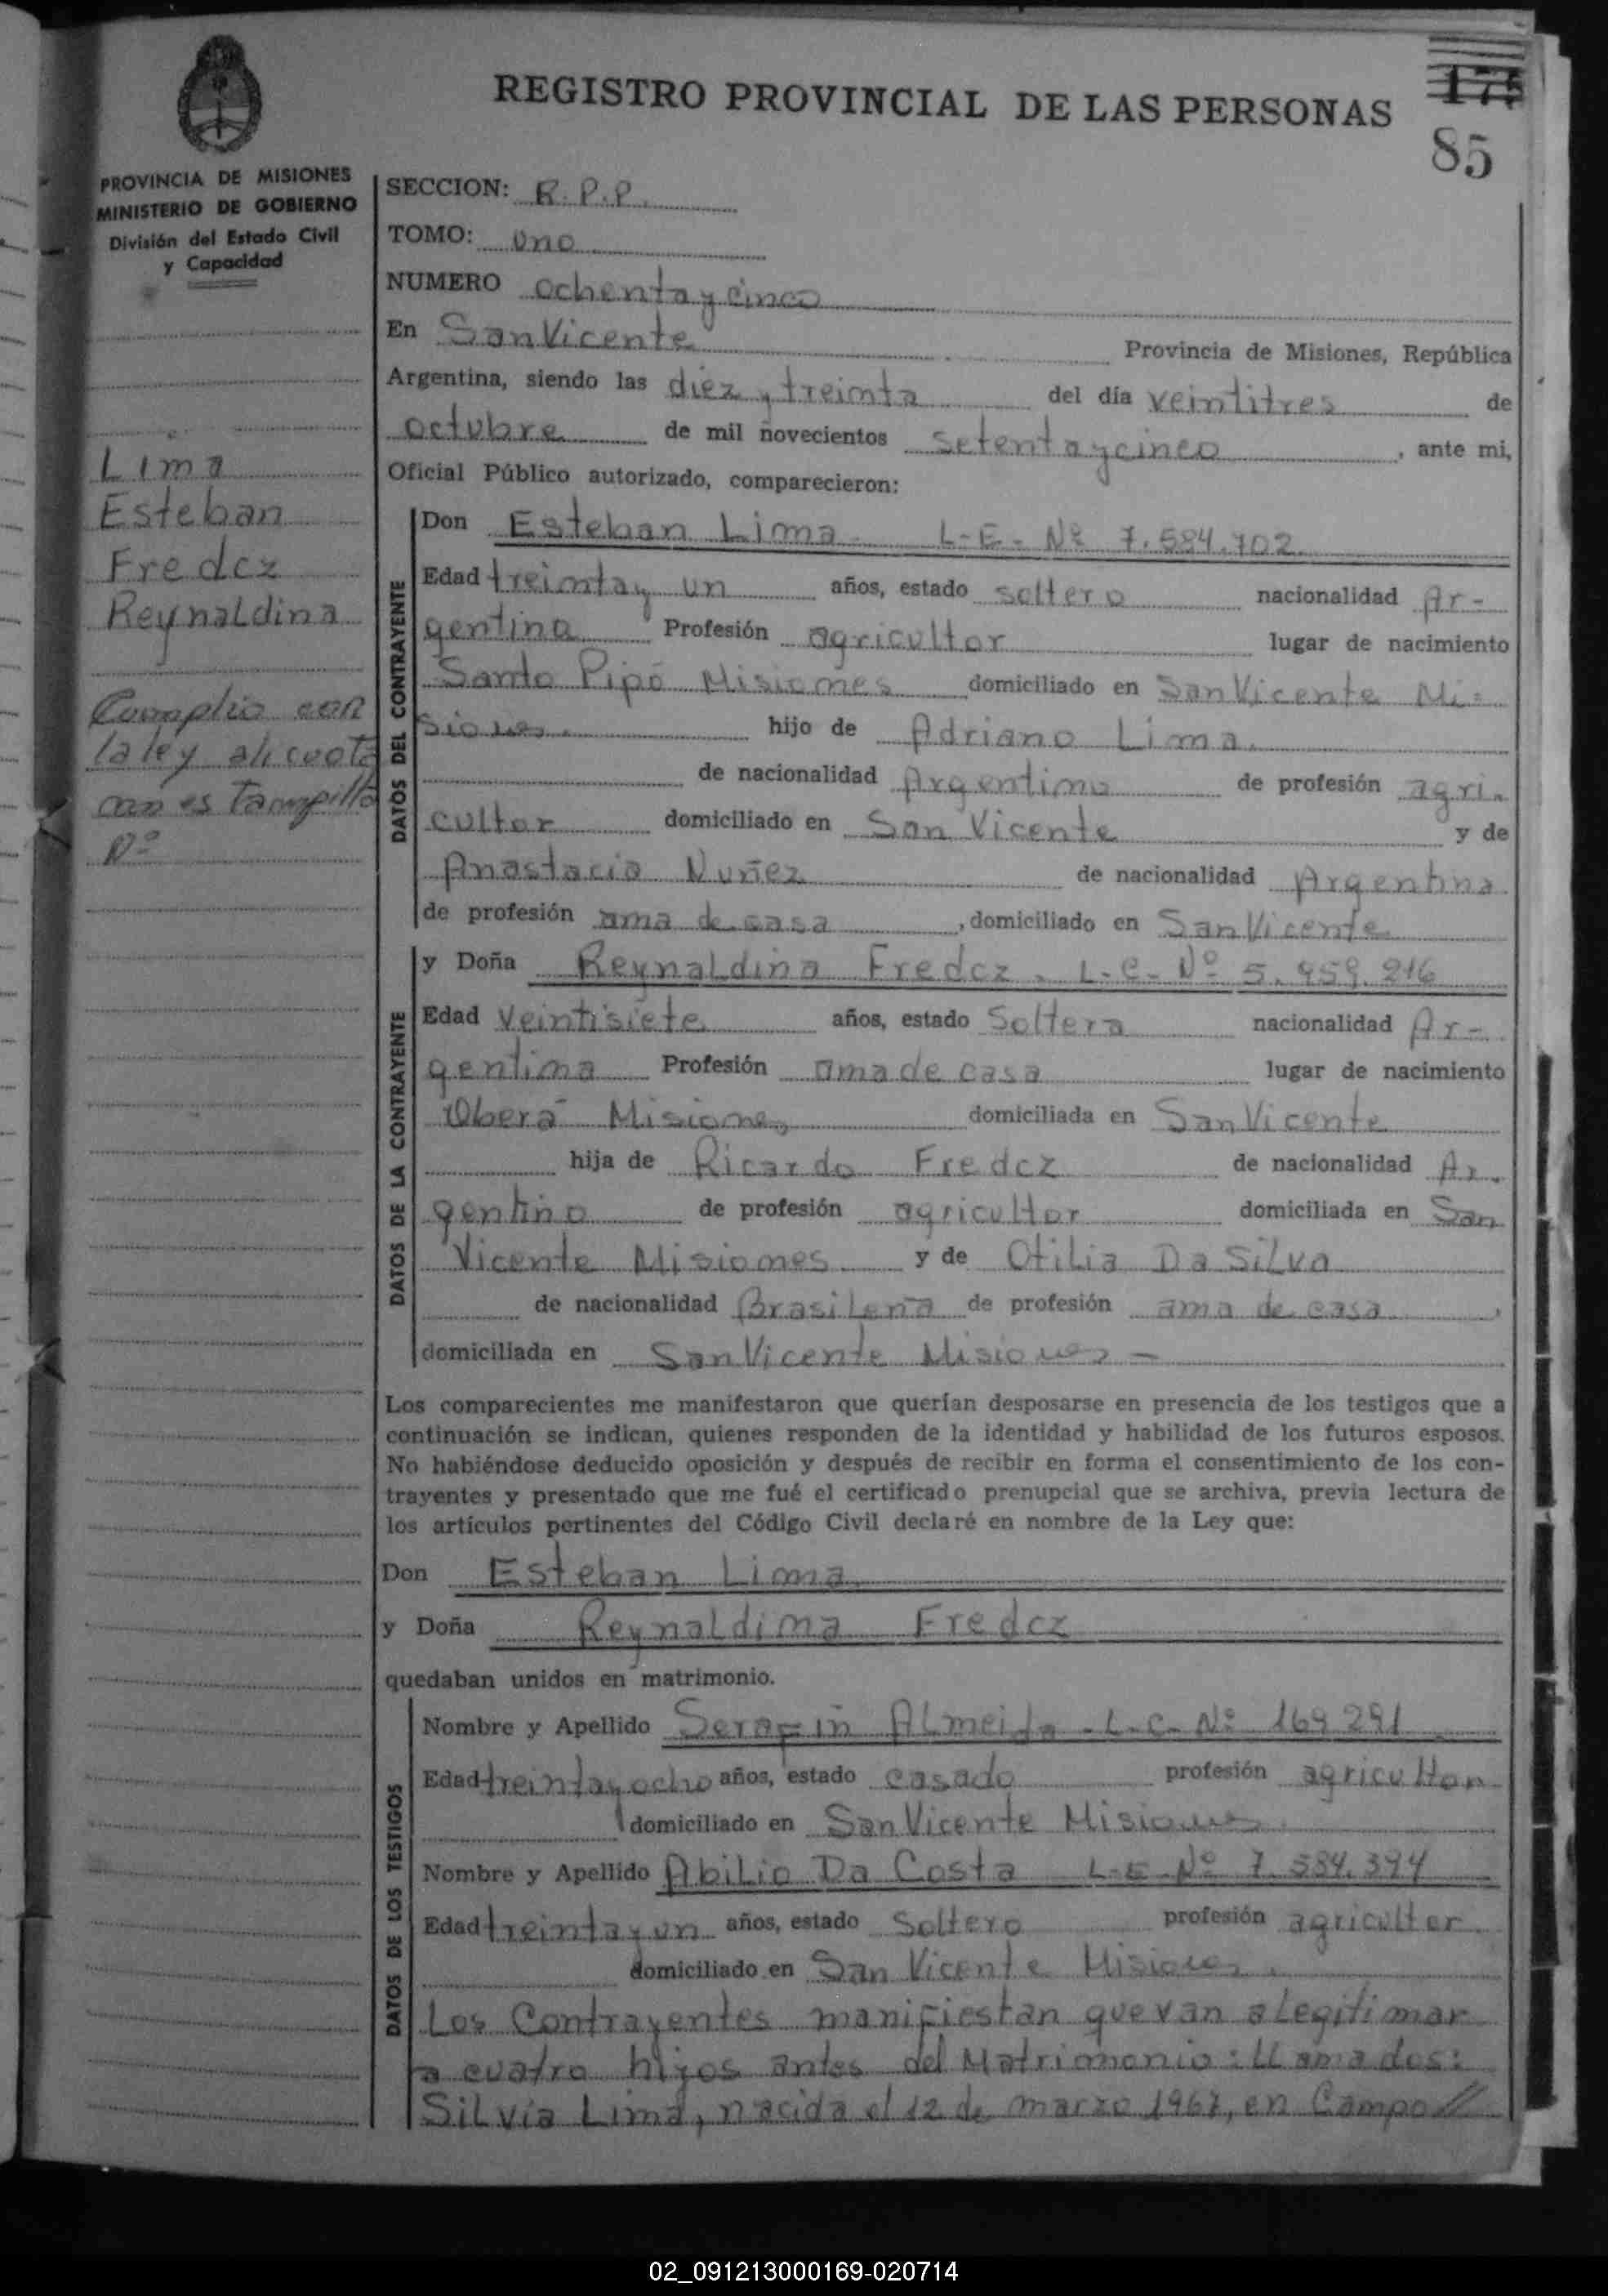 REGISTRO PROVINCIAL DE LAS PERSONAS
175
85
PROVINCIA DE MISIONES
MINISTERIO DE GOBIERNO
División del Estado Civil
y Capacidad
Lima
Esteban
Fredcz
Reynaldina
Cumplio con
la ley
N°
SECCION: R.P.P.
TOMO: uno
NUMERO ochenta y cinco
En San Vicente Provincia de Misiones, República
Argentina, siendo las diez y treimta del día veintitres de
octubre de mil novecientos setenta y cinco, ante mi,
Oficial Público autorizado, comparecieron:
DATOS DEL CONTRAYENTE
Don Esteban Lima L-E- Nº 7.584.702
Edad treimta y un años, estado soltero nacionalidad Ar-
gentina Profesión agricultor lugar de nacimiento
Santo Pipó Misiomes domiciliado en San Vicente Mi-
siones. hijo de Adriano Lima.
de nacionalidad Argentimo de profesión agri-
cultor domiciliado en San Vicente y de
Anastacia Nuñez de nacionalidad Argentina
de profesión ama de casa, domiciliado en San Vicente
DATOS DE LA CONTRAYENTE
y Doña Reynaldina Fredcz. L-C- Nº 5.959.216
Edad Veintisiete años, estado Soltera nacionalidad Ar-
gentima Profesión ama de casa lugar de nacimiento
Oberá Misiomes domiciliada en San Vicente
hija de Ricardo Fredcz de nacionalidad Ar-
gentino de profesión agricultor domiciliada en San
Vicente Misiomes y de Otilia Da Silva
de nacionalidad Brasileña de profesión ama de casa,
domiciliada en San Vicente Misiones -
Los comparecientes me manifestaron que querían desposarse en presencia de los testigos que a
continuación se indican, quienes responden de la identidad y habilidad de los futuros esposos.
No habiéndose deducido oposición y después de recibir en forma el consentimiento de los con-
trayentes y presentado que me fué el certificado prenupcial que se archiva, previa lectura de
los artículos pertinentes del Código Civil declaré en nombre de la Ley que:
Don Esteban Lima
y Doña Reynaldima Fredcz
quedaban unidos en matrimonio.
DATOS DE LOS TESTIGOS
Nombre y Apellido Serafin Almeida - L.C- Nº 169291
Edad treinta y ocho años, estado casado profesión agricultor
domiciliado en San Vicente Misiones
Nombre y Apellido Abilio Da Costa L-E Nº 7.584.394
Edad treinta y un años, estado Soltero profesión agricultor
domiciliado en San Vicente Misiones.
Los Contrayentes manifiestan que van a Legitimar
a cuatro hijos antes del Matrimonio: Llamados:
Silvia Lima, nacida el 12 de marzo 1967, en Campo //
02_091213000169-020714